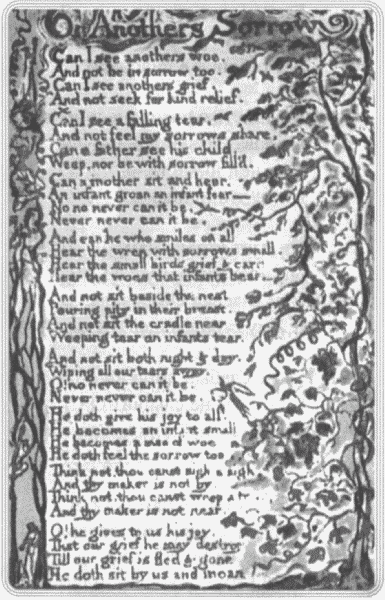 On Anothers Sorrow
Can I see anothers woe,
And not be in sorrow too.
Can I see anothers grief,
And not seek for kind relief.
Can I see a falling tear,
And not feel my sorrows share,
Can a father see his child,
Weep, nor be with sorrow fill'd.
Can a mother sit and hear,
An infant groan an infant fear—
No no never can it be,
Never never can it be.
And can he who smiles on all
Hear the wren with sorrows small,
Hear the small birds grief & care
Hear the woes that infants bear—
And not sit beside the nest
Pouring pity in their breast,
And not sit the cradle near
Weeping tear on infants tear.
And not sit both night & day,
Wiping all our tears away.
O! no never can it be.
Never never can it be.
He doth give his joy to all.
He becomes an infant small
He becomes a man of woe
He doth feel the sorrow too.
Think not, thou canst sigh a sigh
And thy maker is not by.
Think not, thou canst weep a
And thy maker is not near.
O! he gives to us his joy,
That our grief he may destroy
Till our grief is fled & gone
He doth sit by us and moan